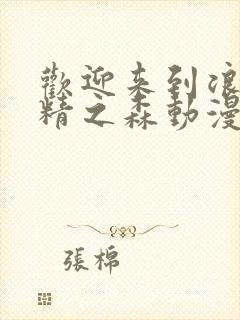 歡迎来到浪
精之森動漫
張棉